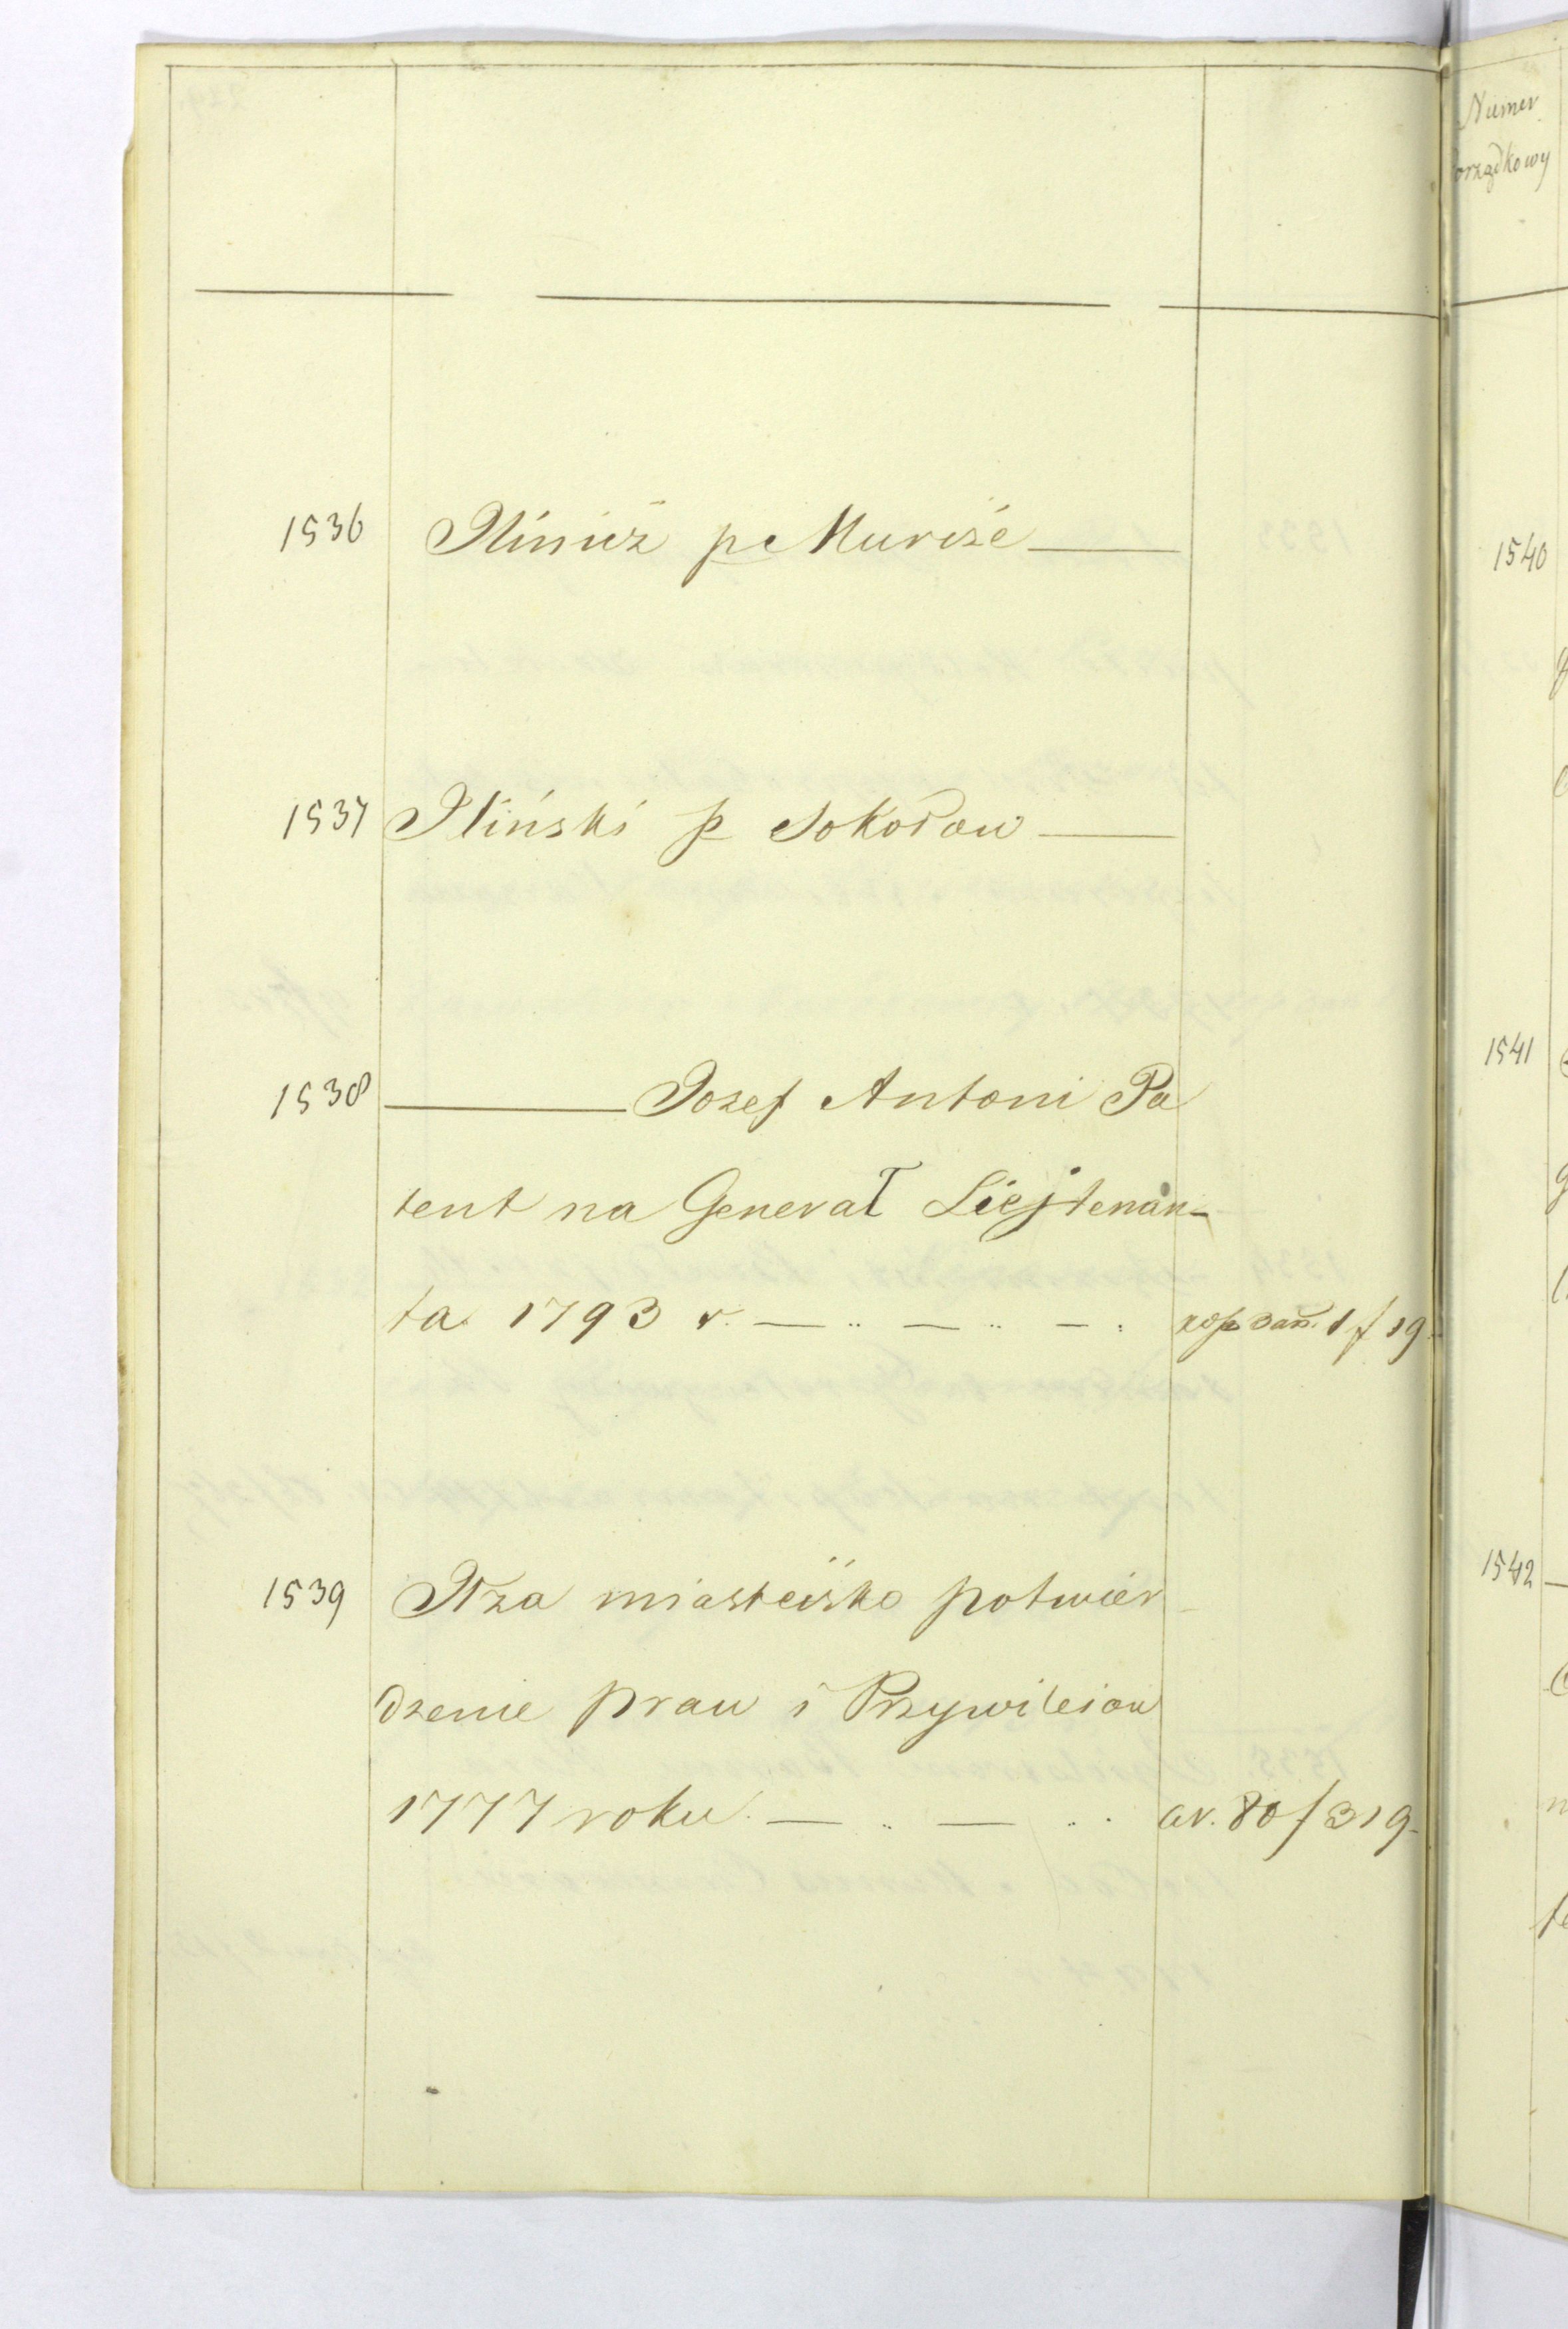 1536 Ilinicz p Murise
1537 Iliński p Sokołow
1538 Jozef Antoni Pa
tent na Generał Liejtenan-
ta 1793 r. кор зап. 1 f 19
1539 Iłza miasteczko potwier
dzenie praw i Przywileiow
1777 roku. ar. 80 f 319
Numer
orządkowy
1540
1541
1542